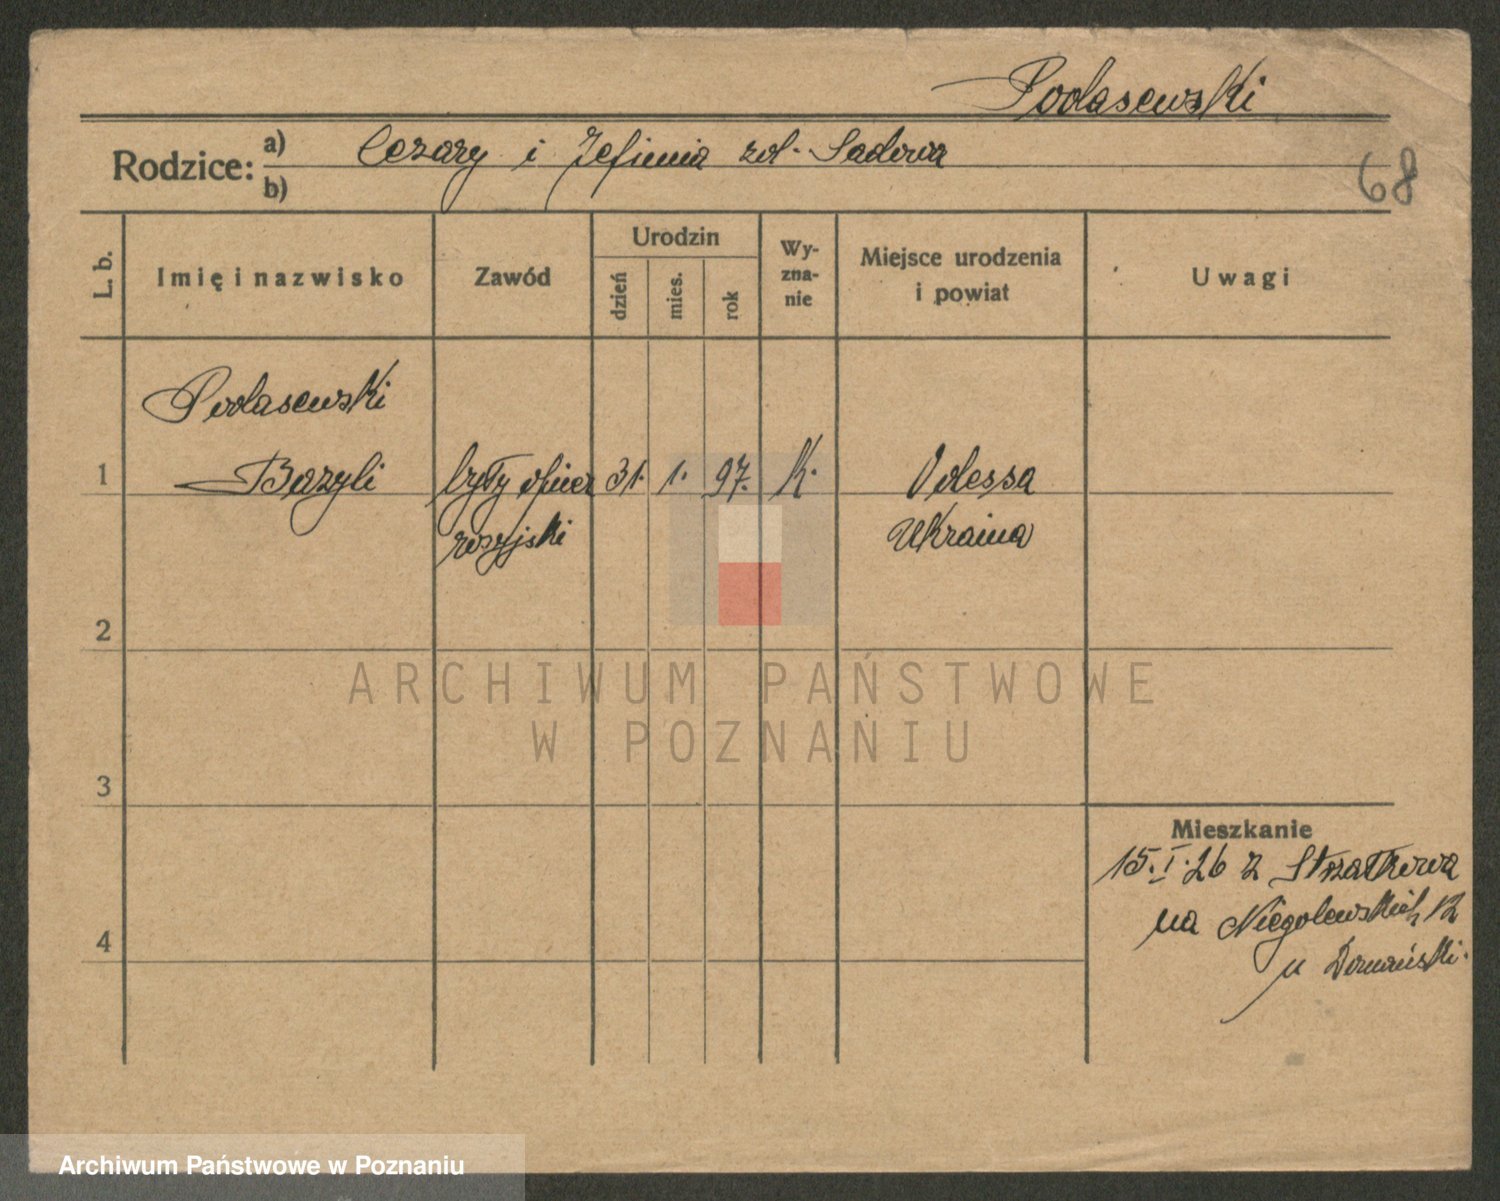 Podasewski
Rodzice: a) Cezary i Jefimia zd. Sadowa
b)
68
L. b.
Imię i nazwisko
Zawód
Urodzin
dzień
mies.
rok
Wy-
zna-
nie
Miejsce urodzenia
i powiat
Uwagi
Podasewski
1 Bazyli były oficer 31. 1. 97. K. Odessa
rosyjski Ukraina
2
3
4
Mieszkanie
15.I.26 z Strzałkowa
na Niegolewskich 12
u Domański.
ARCHIWUM PAŃSTWOWE
W POZNANIU
Archiwum Państwowe w Poznaniu